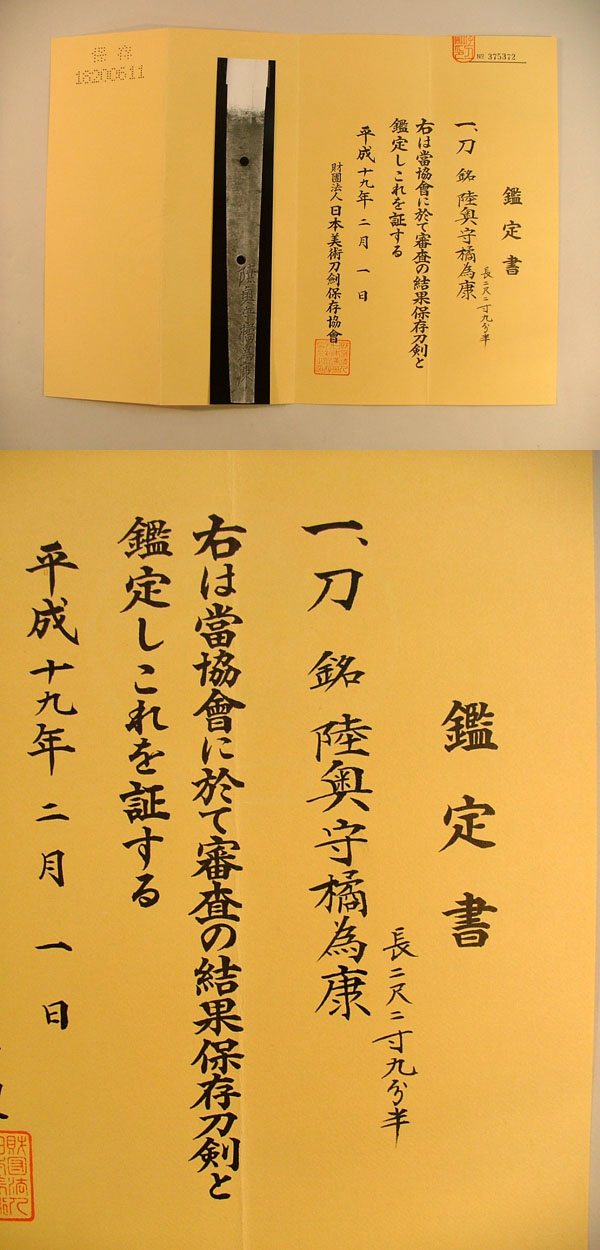 保存
16200611
№ 375372
鑑定書
一、刀 銘 陸奥守橘為康
長二尺二寸九分半
右は當協會に於て審査の結果保存刀剣と
鑑定しこれを証する
平成十九年二月一日
財團法人 日本美術刀劍保存協會
陸奥守橘為康
鑑定書
一、刀 銘 陸奥守橘為康
長二尺二寸九分半
右は當協會に於て審査の結果保存刀剣と
鑑定しこれを証する
平成十九年二月一日